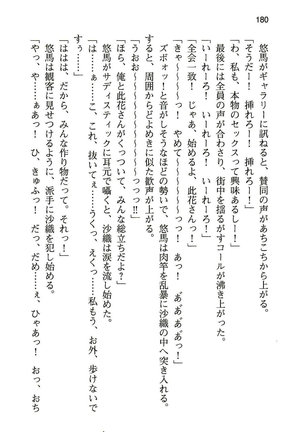 180
悠馬がギャラリーに訊ねると、賛同の声があちこちから上がる。
「そうだー！　挿れろー！　挿れろー！」
「わ、私も、本物のセックスって興味あるしー！」
最後には全員の声が合わさり、街中を揺るがすコールが沸き上がった。
「いーれーろ！　いーれーろ！　いーれーろ！」
「全会一致！　じゃあ、始めるよ、此花さん！」
「きゃ～～～～っ！　やめて～～～～っ！　あっ！　あ゛あ゛あ゛あ゛っ！」
ズボォッ！と音がしそうなほどの勢いで、悠馬は肉竿を乱暴に沙織の中へ突き入れる。
すると、周囲からどよめきに似た歓声が上がる。
「うおお～～～～～～～～っ！」
「ほら、俺と此花さんがくっついて、みんな総立ちだよ？」
悠馬がサディスティックに耳元で囁くと、沙織は涙を流し始めた。
「や～～～～……こ、これ、抜いてぇ……うくっ、えくっ……私もう、お外、歩けないです
ぅ……」
「ははは、だから、みんな作り物だって。それっ！」
悠馬は観客に見せつけるように、派手に沙織を犯し始める。
「やっ、や……ぁあっ！　ひ、きゅふっ！　だっ、だめ……ぇ、ひゃあっ！　おっ、おち